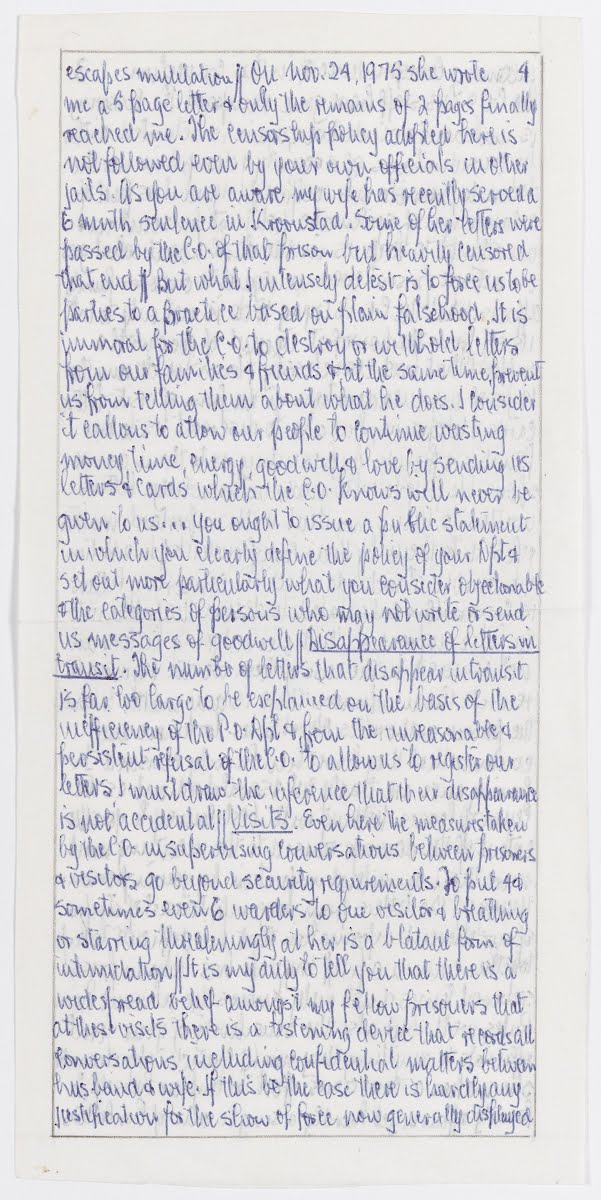 escapes mutilation// On Nov. 24, 1975 she wrote 4
me a 5 page letter & only the remains of 2 pages finally
reached me. The censorship policy adopted here is
not followed even by your own officials in other
jails. As you are aware my wife has recently served a
6 month sentence in Kroonstad. Some of her letters were
passed by the C.O. of that prison but heavily censored
that end// But what I intensely detest is to force us to be
parties to a practice based on plain falsehood. It is
immoral for the C.O. to destroy or withhold letters
from our families & friends & at the same time, prevent
us from telling them about what he does. I consider
it callous to allow our people to continue wasting
money, time, energy, goodwill & love by sending us
letters & cards which the C.O. knows will never be
given to us... You ought to issue a public statement
in which you clearly define the policy of your Dpt &
set out more particularly what you consider objectionable
& the categories of persons who may not write or send
us messages of goodwill// Disappearance of letters in
transit. The number of letters that disappear in transit
is far too large to be explained on the basis of the
inefficiency of the P.O. Dpt &, from the unreasonable &
persistent refusal of the C.O. to allow us to register our
letters I must draw the inference that their disappearance
is not accidental// Visits. Even here the measures taken
by the C.O. in supervising conversations between prisoners
& visitors go beyond security requirements. To put 4 &
sometimes even 6 warders to one visitor & breathing
or starring threateningly at her is a blatant form of
intimidation// It is my duty to tell you that there is a
widespread belief amongst my fellow prisoners that
at these visits there is a listening device that records all
conversations, including confidential matters between
husband & wife. If this be the case there is hardly any
justification for the show of force now generally displayed